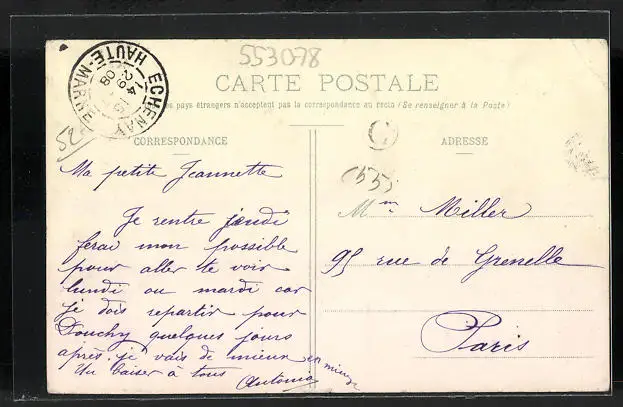 553078
CARTE POSTALE
pays étrangers n'acceptent pas la correspondance au recto (Se renseigner à la Poste)
ECHENAY
HAUTE-MARNE
CORRESPONDANCE
ADRESSE
52
Ma petite Jeannette
Je rentre jeudi
ferai mon possible
pour aller te voir
lundi ou mardi car
je dois repartir pour
Douchy quelques jours
après. je vais de mieux en mieux
Un baiser à tous Antonia
Mme Miller
95 rue de Grenelle
Paris